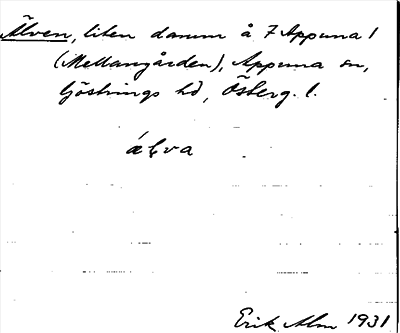 Älven, liten damm å 7 Appuna 1
(Mellangården), Appuna sn,
Göstrings hd, Österg. l.
älva
Erik Alm 1931